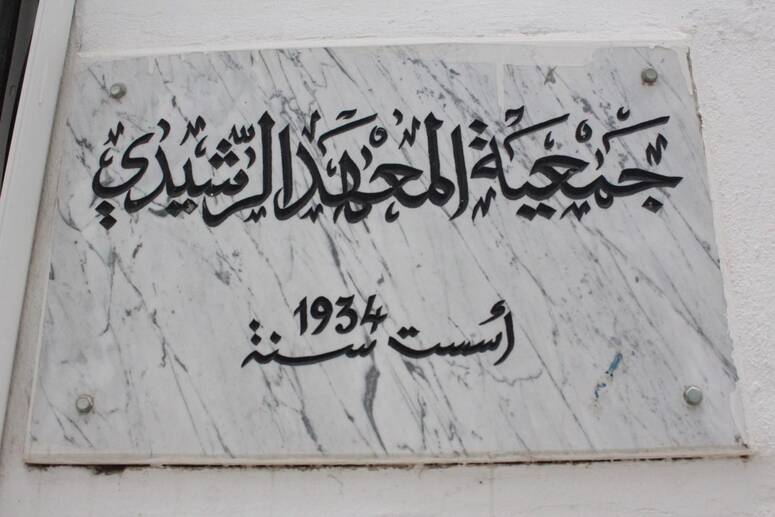 جمعية المعهد الرشيدي
أسست سنة 1934